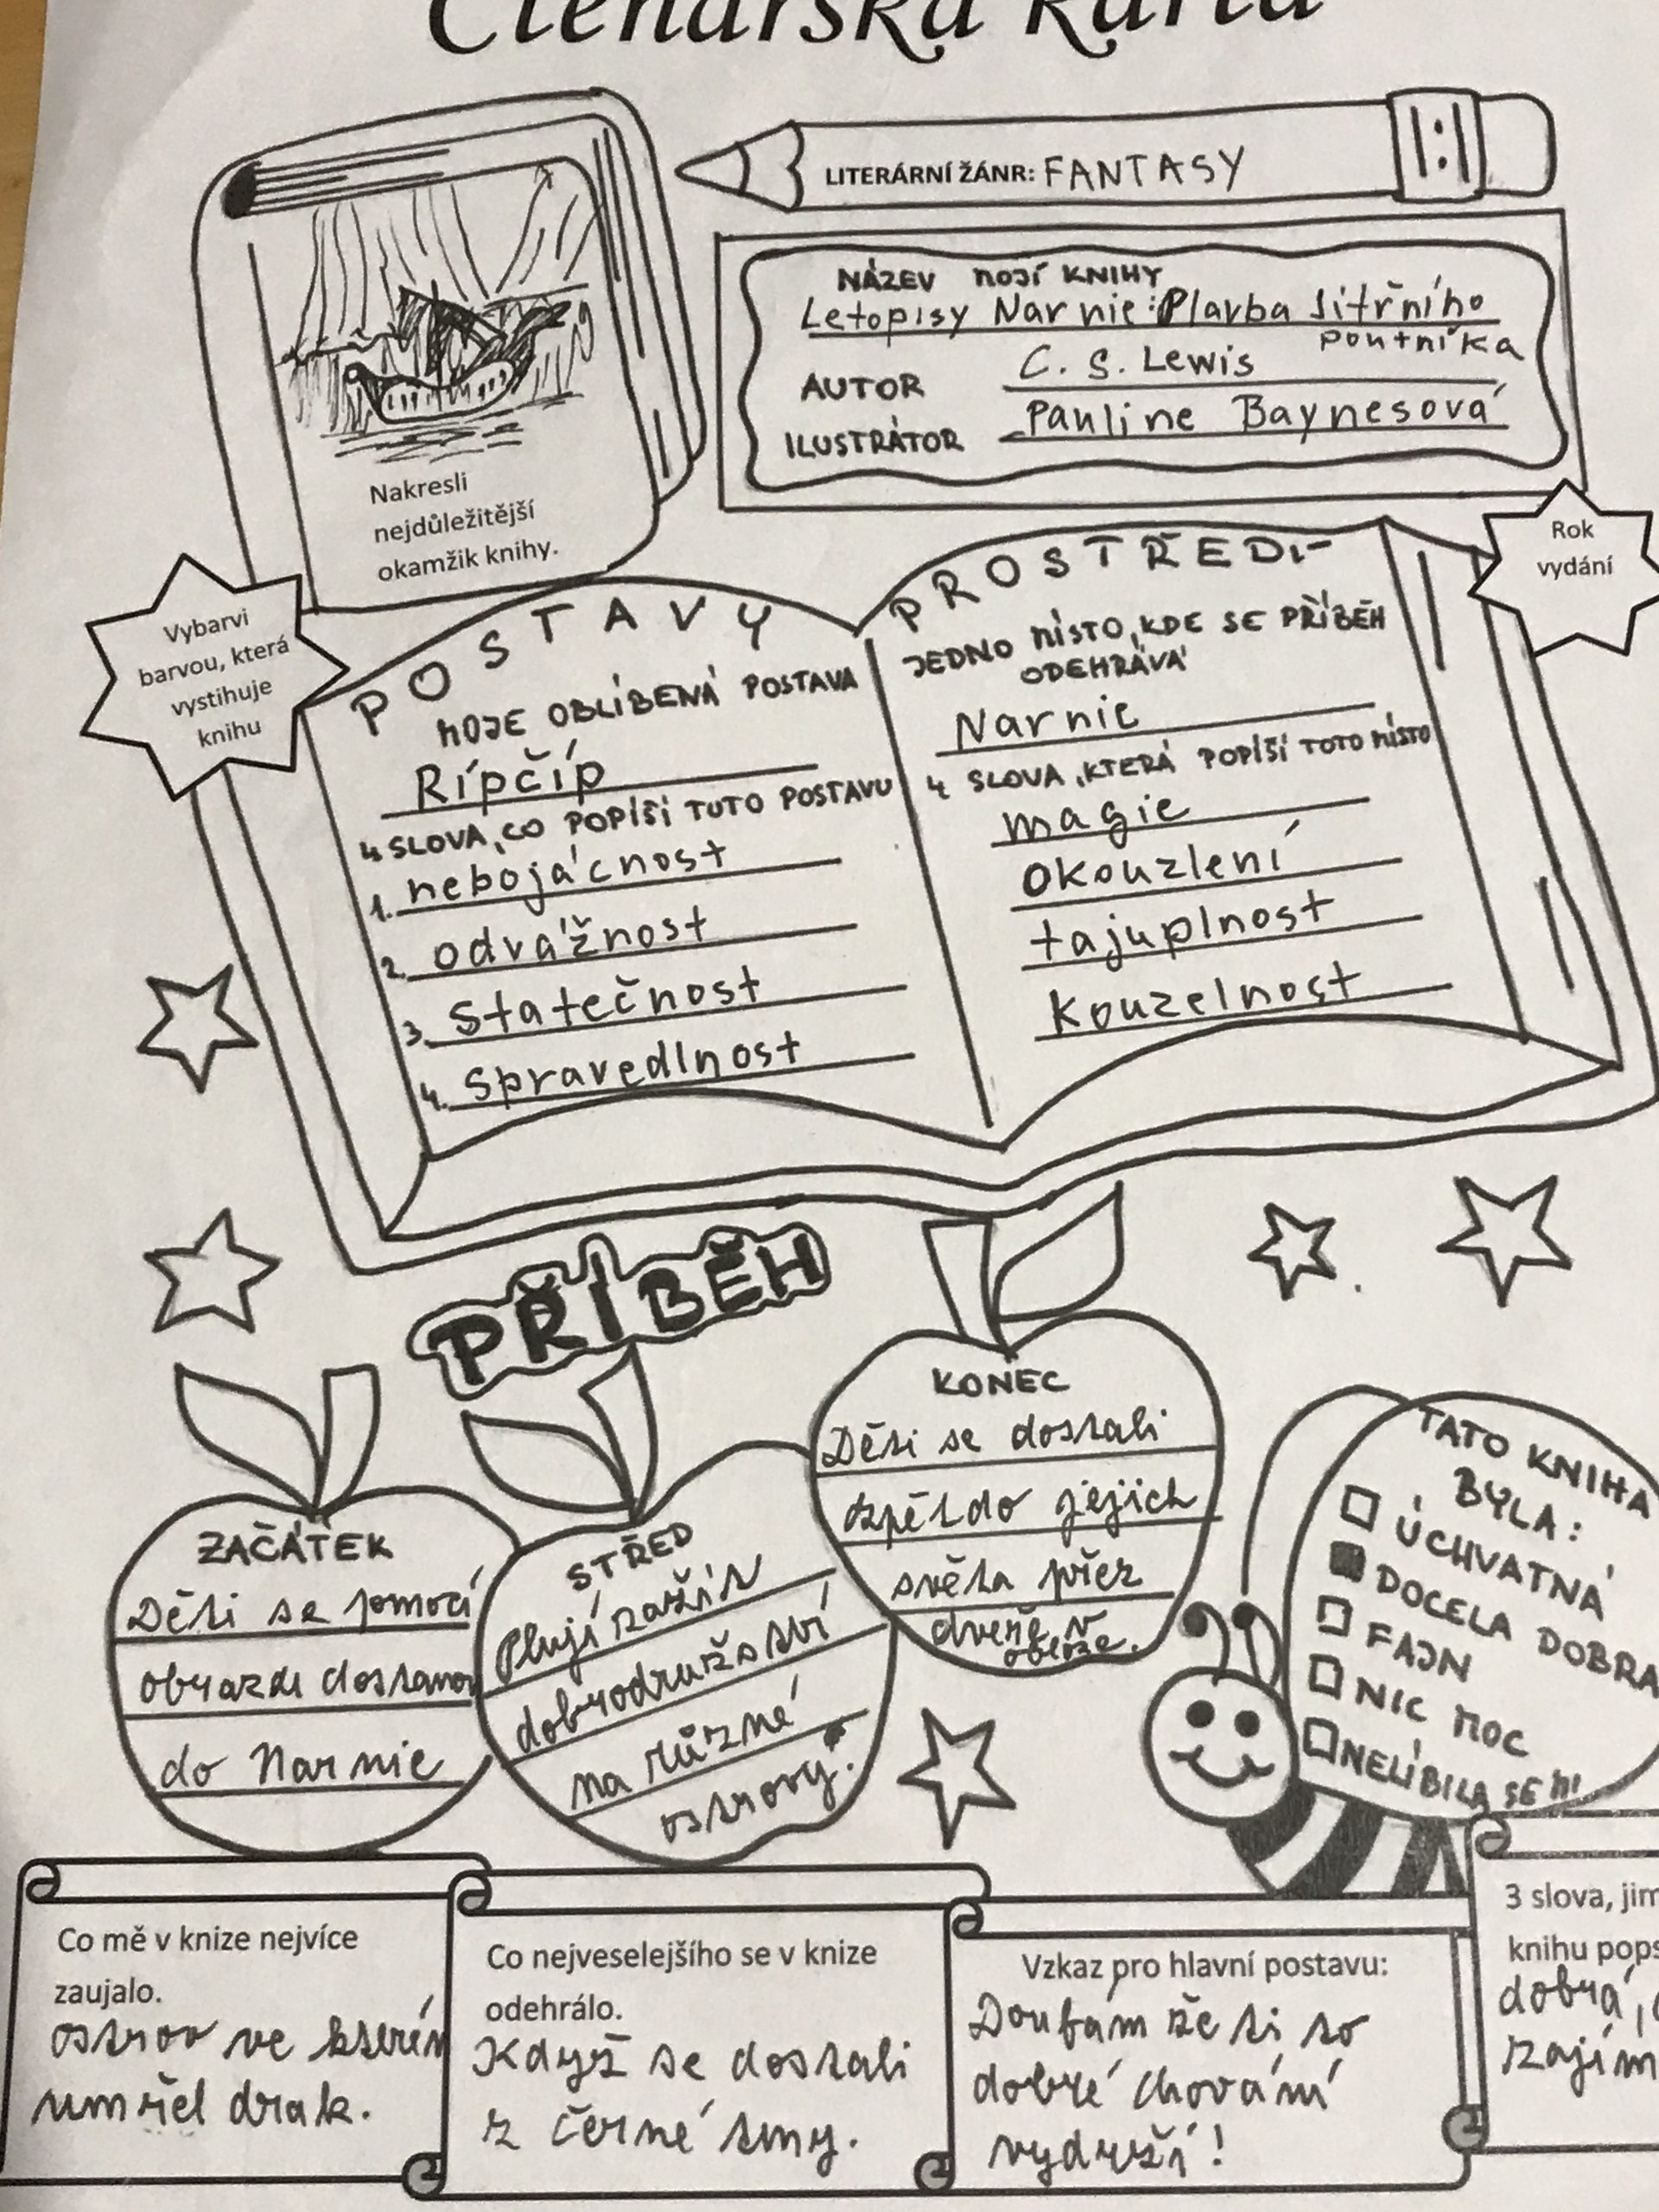 Čtenářská karta
LITERÁRNÍ ŽÁNR: FANTASY
NÁZEV MOJÍ KNIHY
Letopisy Narnie: Plavba Jitřního
poutníka
AUTOR C. S. Lewis
ILUSTRÁTOR Pauline Baynesová
Nakresli
nejdůležitější
okamžik knihy.
Rok
vydání
Vybarvi
barvou, která
vystihuje
knihu
POSTAVY
MOJE OBLÍBENÁ POSTAVA
Rípčíp
4 SLOVA, CO POPÍŠÍ TUTO POSTAVU
1. nebojácnost
2. odvážnost
3. Statečnost
4. Spravedlnost
PROSTŘEDÍ
JEDNO MÍSTO, KDE SE PŘÍBĚH
ODEHRÁVÁ
Narnie
4 SLOVA, KTERÁ POPÍŠÍ TOTO MÍSTO
magie
okouzlení
tajuplnost
kouzelnost
PŘÍBĚH
ZAČÁTEK
Děti se pomocí
obrazu
do Narnie
STŘED
Plují zažít
dobrodružství
na různé
ostrovy.
KONEC
Děti se dostali
zpět do jejich
světa přez
dveře v
obloze.
TATO KNIHA
BYLA:
ÚCHVATNÁ
DOCELA DOBRÁ
FAJN
NIC MOC
NELÍBILA SE MI
Co mě v knize nejvíce
zaujalo.
ostrov ve kterém
umřel drak.
Co nejveselejšího se v knize
odehrálo.
Když se dostali
z černé tmy.
Vzkaz pro hlavní postavu:
Doufám že ti to
dobré chování
vydrží!
3 slova, jim
knihu pops
dobrá,
zajím